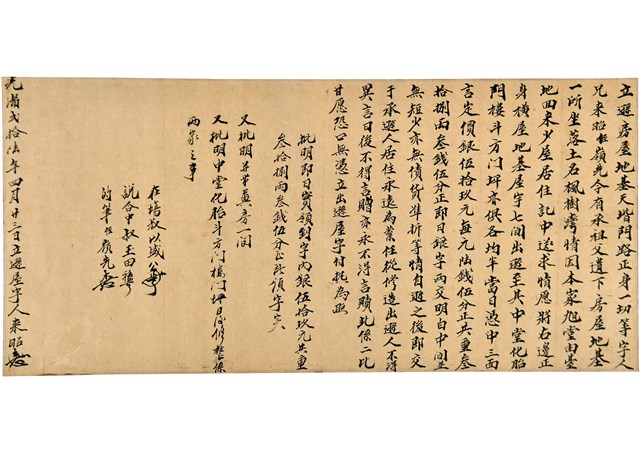 立遜房屋地基天堦門路正身一切等字人
兄來昭仝嶺光今有承祖父遺下房屋地基
一所坐落土名楓樹灣情因本家旭堂由臺
地回來少屋居住託中遜求情愿將右邊正
身橫屋地基屋宇七間出遜至其中堂化胎
門樓斗方門坪眷俱各均半當日憑中三面
言定價銀伍拾玖元每元陸錢伍分正共重叁
拾捌兩叁錢伍分正即日銀字兩交明白中間並
無短少亦無債貨準折等情自遜之後即交
于承遜人居住永遠為業任從修造出遜人不得
異言日後不得言贈亦永不得言贖此係二比
甘愿恐口無憑立出遜屋字付執為照
批明即日實領到字內銀伍拾玖元共重
叁拾捌兩叁錢伍分正此領字實
又批明
房一間
又批明中堂化胎斗方門樓門坪日後修整係
兩家之事
在場叔以盛
說合中叔玉田
的筆仝嶺光
光緒弍拾陸年四月廿三日立遜屋字人來昭